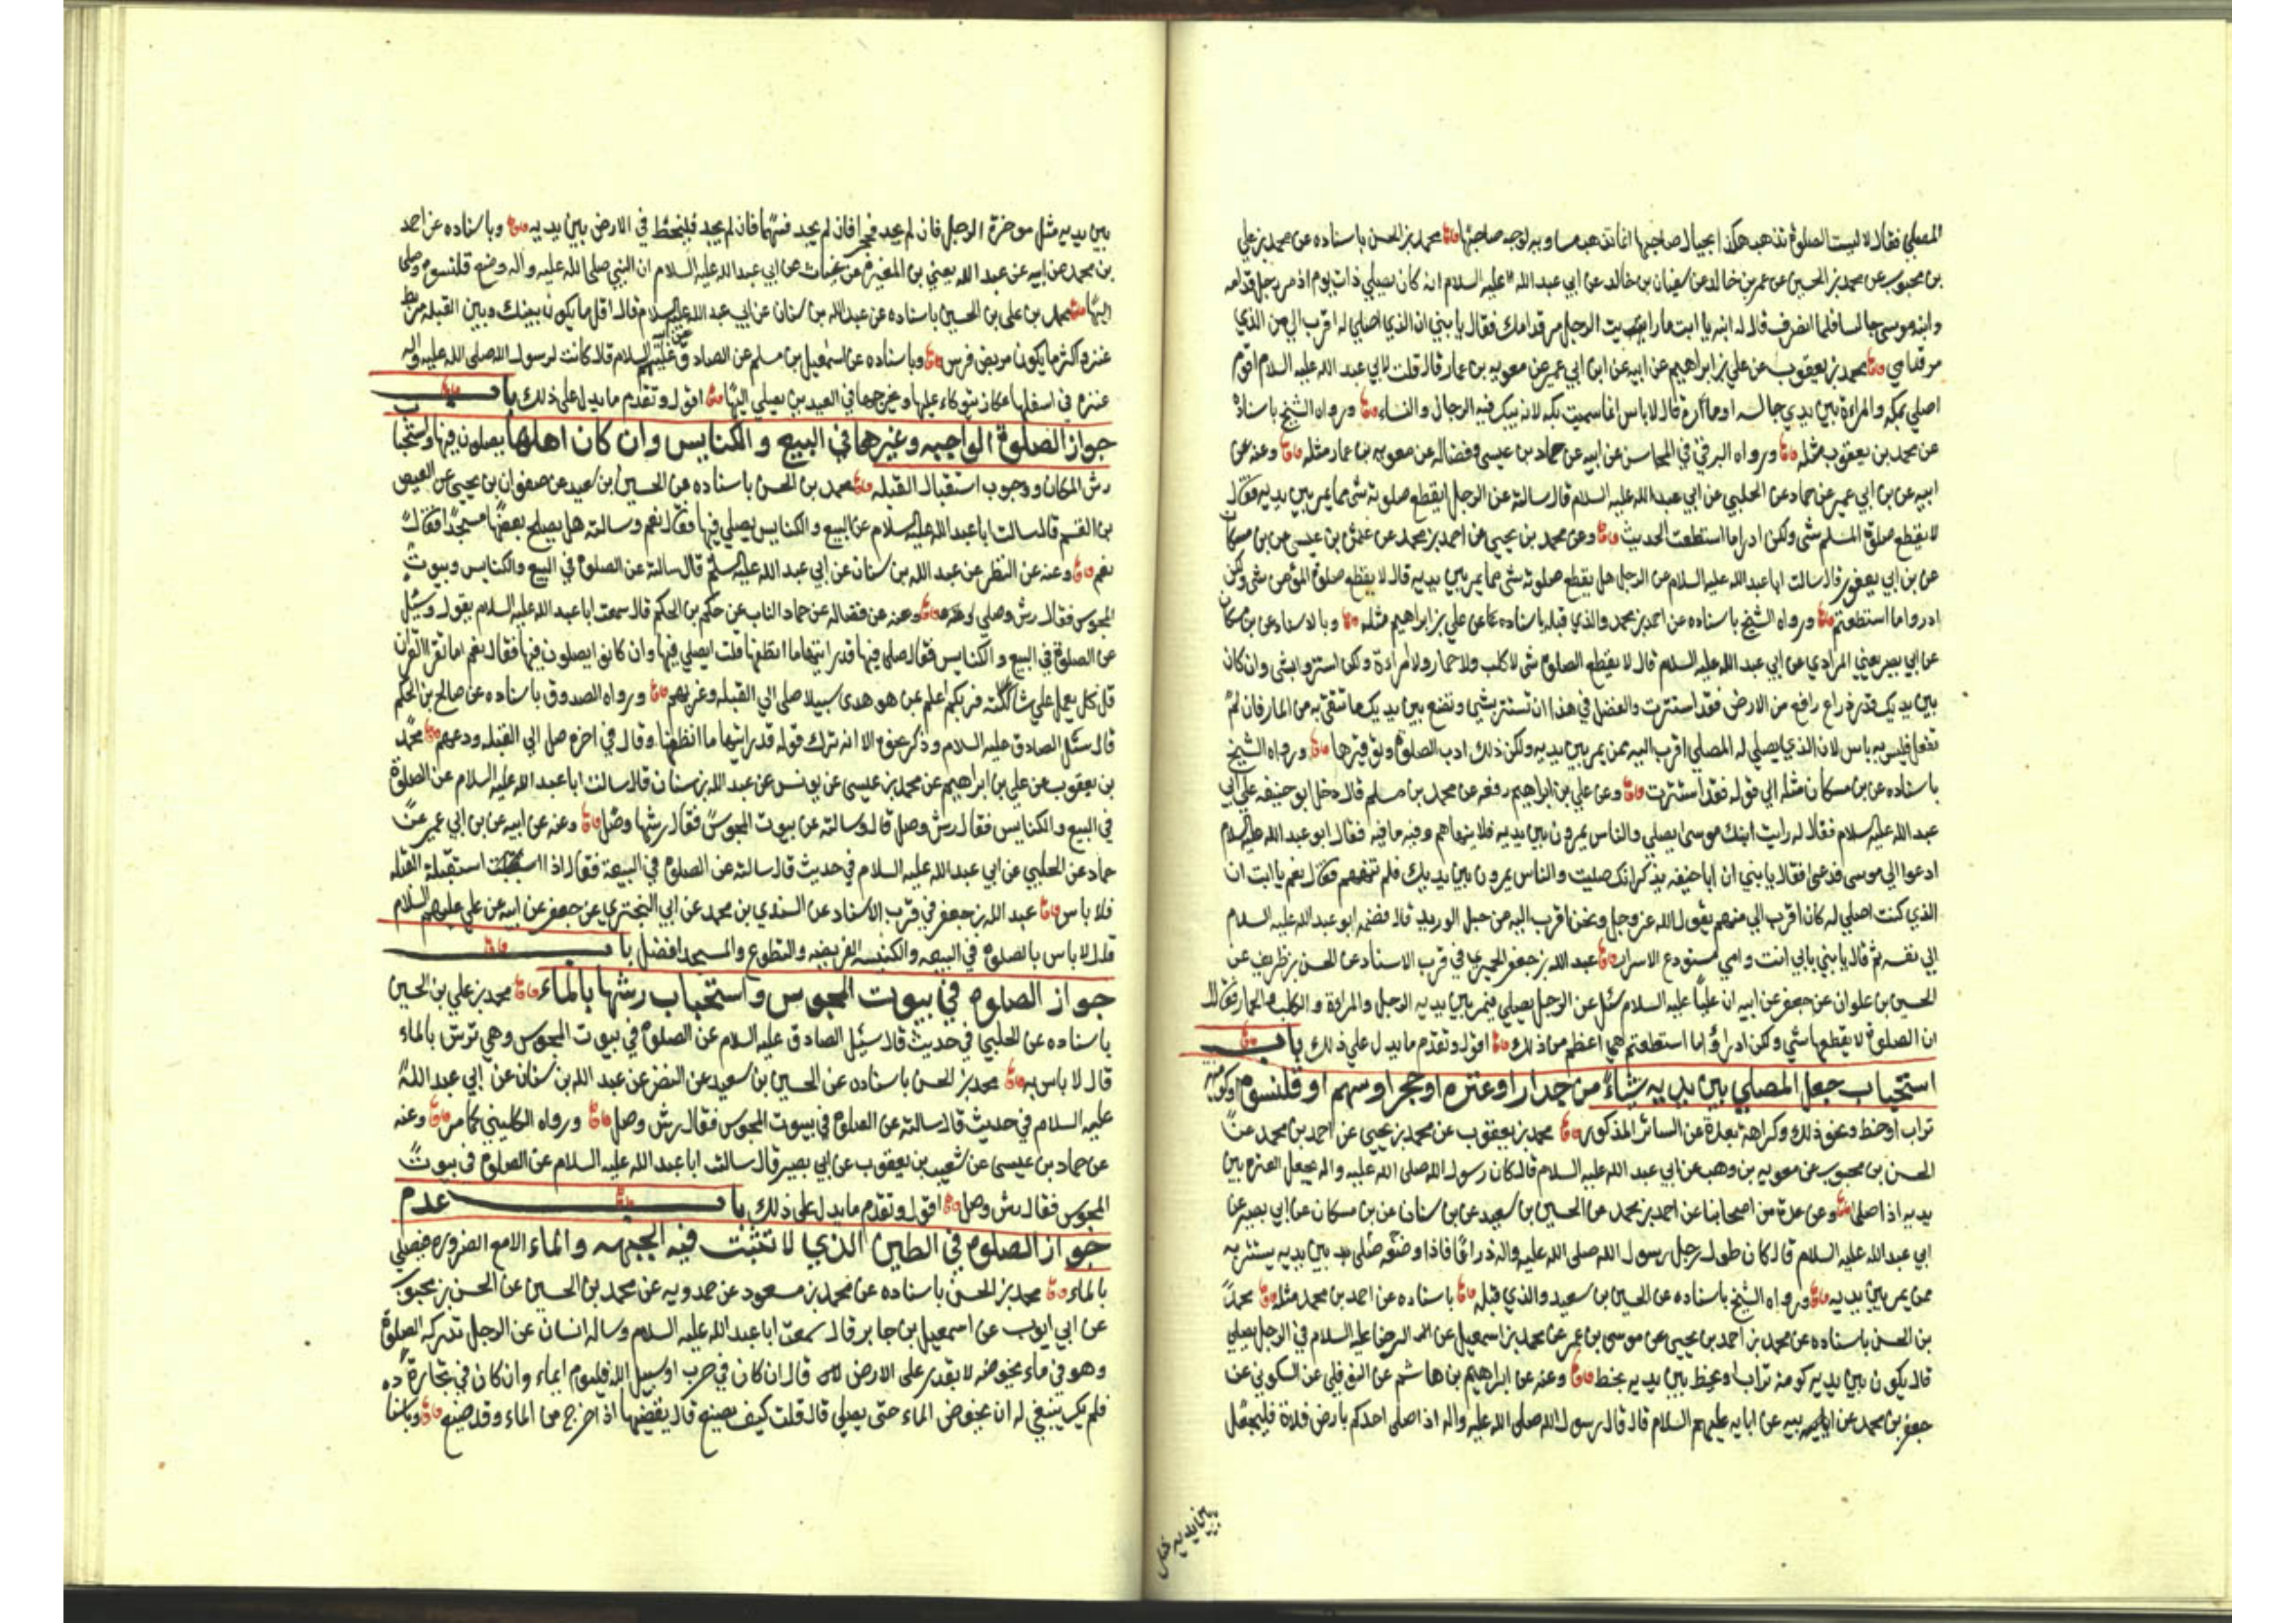 المصلي فقال لا ليست الصلوة تذهب هكذا بحيال صاحبها انما تذهب مساوية لوجه صاحبها محمد بن الحسن باسناده عن محمد بن علي
بن محبوب عن محمد بن الحسين عن عمر بن خالد عن سفيان بن خالد عن ابي عبد الله عليه السلام انه كان يصلي ذات يوم اذ مر رجل قدامه
وابنه موسى جالس فلما انصرف قال له ابنه يا ابت ما رايت الرجل مر قدامك فقال يا بني ان الذي اصلي له اقرب الي من الذي
مر قدامي محمد بن يعقوب عن علي بن ابراهيم عن ابيه عن ابن ابي عمير عن معويه بن عمار قال قلت لابي عبد الله عليه السلام اقوم
اصلي بمكه والمراة بين يدي جالسه او مارة قال لا باس انما سميت بكه لانه يبك فيه الرجال والنساء ورواه الشيخ باسناده
عن محمد بن يعقوب مثله ورواه البرقي في المحاسن عن ابيه عن حماد بن عيسى وفضاله عن معويه بن عمار مثله وعنه عن
ابيه عن بن ابي عمير عن حماد عن الحلبي عن ابي عبد الله عليه السلام قال سالته عن الرجل ايقطع صلوته شى مما يمر بين يديه فقال
لا يقطع صلوة المسلم شى ولكن ادرا ما استطعت الحديث وعن محمد بن يحيي عن احمد بن محمد عن عثمن بن عيسى عن بن مسكان
عن بن ابي يعفور قال سالت ابا عبد الله عليه السلام عن الرجل هل يقطع صلوته شى مما يمر بين يديه قال لا يقطع صلوة المؤمن شى ولكن
ادروا ما استطعتم ورواه الشيخ باسناده عن احمد بن محمد والذي قبله باسناده عن علي بن ابراهيم مثله وبالاسناد عن بن مسكان
عن ابي بصير يعني المرادي عن ابي عبد الله عليه السلام قال لا يقطع الصلوة شى لا كلب ولا حمار ولا امراءة ولكن استتروا بشى وان كان
بين يديك قدر ذراع رافع من الارض فقد استترت والفضل في هذا ان تستتر بشيى وتضع بين يديك ما تتقي به من المار فان لم
تفعل فليس به باس لان الذي يصلي له المصلي اقرب اليه ممن يمر بين يديه ولكن ذلك ادب الصلوة وتوقيرها ورواه الشيخ
باسناده عن بن مسكان مثله الى قوله فقد استترت وعن علي بن ابراهيم رفعه عن محمد بن مسلم قال دخل ابو حنيفه علي ابي
عبد الله عليه السلام فقال له رايت ابنك موسى يصلي والناس يمرون بين يديه فلا ينهاهم وفيه ما فيه فقال ابو عبد الله عليه السلام
ادعوا الي موسى فدعي فقال يا بني ان ابا حنيفه يذكر انك صليت والناس يمرون بين يديك فلم تنههم فقال نعم يا ابت ان
الذي كنت اصلي له كان اقرب الي منهم يقول الله عز وجل ونحن اقرب اليه من حبل الوريد قال فضمه ابو عبد الله عليه السلام
الي نفسه ثم قال يا بني بابي انت وامي مستودع الاسرار عبد الله بن جعفر الحميري في قرب الاسناد عن الحسن بن ظريف عن
الحسين بن علوان عن جعفر عن ابيه ان عليا عليه السلام سئل عن الرجل يصلي فيمر بين يديه الرجل والمراة والكلب والحمار فقال
ان الصلوة لا يقطعها شئي ولكن ادراؤا ما استطعتم هي اعظم من ذلك اقول وتقدم ما يدل علي ذلك باب
استحباب جعل المصلي بين يديه شياء من جدار او عنزه او حجر او سهم او قلنسوة او كومه
تراب او خط ونحو ذلك وكراهة بعده عن الساتر المذكور محمد بن يعقوب عن محمد بن يحيى عن احمد بن محمد عن
الحسن بن محبوب عن معويه بن وهب عن ابي عبد الله عليه السلام قال كان رسول الله صلى الله عليه واله يجعل العنزه بين
يديه اذا صلى وعن عدة من اصحابنا عن احمد بن محمد عن الحسين بن سعيد عن بن سنان عن بن مسكان عن ابي بصير عن
ابي عبد الله عليه السلام قال كان طول رحل رسول الله صلى الله عليه واله ذراعا فاذا وضعه صلى بين يديه يستتر به
ممن يمر بين يديه ورواه الشيخ باسناده عن الحسين بن سعيد والذي قبله باسناده عن احمد بن محمد مثله محمد
بن الحسن باسناده عن محمد بن احمد بن يحيي عن موسى بن عمر عن محمد بن اسمعيل عن الرضا عليه السلام في الرجل يصلي
قال يكون بين يديه كومة تراب او يخط بين يديه بخط وعنه عن ابراهيم بن هاشم عن النوفلي عن السكوني عن
جعفر بن محمد عن ابيه عن ابايه عليهم السلام قال قال رسول الله صلى الله عليه واله اذا صلى احدكم بارض فلاة فليجعل
بين يديه مثل
بين يديه مثل موخرة الرحل فان لم يجد فحجرا فان لم يجد فسهما فان لم يجد فليخط في الارض بين يديه وباسناده عن احمد
بن محمد عن ابيه عن عبد الله يعني بن المغيرة عن غياث عن ابي عبد الله عليه السلام ان النبي صلى الله عليه واله وضع قلنسوة وصلى
اليها محمد بن على بن الحسين باسناده عن عبد الله بن سنان عن ابي عبد الله عليه السلام قال اقل ما يكون بينك وبين القبله مربط
عنز واكثر ما يكون مربض فرس وباسناده عن اسمعيل بن مسلم عن الصادق عليه السلام قال كانت لرسول الله صلى الله عليه واله
عنزة في اسفلها عكاز يتوكاء عليها ويخرجها في العيدين يصلي اليها اقول وتقدم ما يدل على ذلك باب
جواز الصلوة الواجبه وغيرها في البيع والكنايس وان كان اهلها يصلون فيها واستحبا
رش المكان ووجوب استقبال القبله محمد بن الحسن باسناده عن الحسين بن سعيد عن صفوان بن يحيى عن العيص
بن القسم قال سالت ابا عبد الله عليه السلام عن البيع والكنايس يصلي فيها فقال نعم وسالته هل يصلح بعضها مسجدا فقال
نعم وعنه عن النظر عن عبد الله بن سنان عن ابي عبد الله عليه السلم قال سالته عن الصلوة في البيع والكنايس وبيوت
المجوس فقال رش وصلي وعنه عن فضاله عن حماد الناب عن حكم بن الحكم قال سمعت ابا عبد الله عليه السلام يقول وسئل
عن الصلوة في البيع والكنايس فقال صلي فيها قد رايتها ما انظفها قلت ايصلي فيها وان كانوا يصلون فيها فقال نعم اما تقرا القران
قل كل يعمل علي شاكلته فربكم اعلم بمن هو هدى سبيلا صلى الي القبله وغربهم ورواه الصدوق باسناده عن صالح بن الحكم
قال سئل الصادق عليه السلام وذكر نحوه الا انه ترك قوله قد رايتها ما انظفها وقال في اخره صل الى القبله ودعهم محمد
بن يعقوب عن علي بن ابراهيم عن محمد بن عيسى عن يونس عن عبد الله بن سنان قال سالت ابا عبد الله عليه السلام عن الصلوة
في البيع والكنايس فقال رش وصل قال وسالته عن بيوت المجوس فقال رشها وصل وعنه عن ابيه عن بن ابي عمير عن
حماد عن الحلبي عن ابي عبد الله عليه السلام في حديث قال سالته عن الصلوة في البيعة فقال اذا استقبلت القبله
فلا باس عبد الله بن جعفر في قرب الاسناد عن السندي بن محمد عن ابي البختري عن جعفر عن ابيه عن علي عليهم السلام
قال لا باس بالصلوة في البيعه والكنيسه الفريضه والتطوع والمسجد افضل باب
جواز الصلوة في بيوت المجوس واستحباب رشها بالماء محمد بن علي بن الحسين
باسناده عن الحلبي في حديث قال سئل الصادق عليه السلام عن الصلوة في بيوت المجوس وهي ترش بالماء
قال لا باس به محمد بن الحسن باسناده عن الحسين بن سعيد عن النضر عن عبد الله بن سنان عن ابي عبد الله
عليه السلام في حديث قال سالته عن الصلوة في بيوت المجوس فقال رش وصل ورواه الكليني كما مر وعنه
عن حماد بن عيسى عن شعيب بن يعقوب عن ابي بصير قال سالت ابا عبد الله عليه السلام عن الصلوة في بيوت
المجوس فقال رش وصل اقول وتقدم ما يدل على ذلك باب عدم
جواز الصلوة في الطين الذي لا تثبت فيه الجبهه والماء الا مع الضروره فيصلي
بالماء محمد بن الحسن باسناده عن محمد بن مسعود عن حمدويه عن محمد بن الحسين عن الحسن بن محبوب
عن ابي ايوب عن اسمعيل بن جابر قال سمعت ابا عبد الله عليه السلام وساله انسان عن الرجل تدركه الصلوة
وهو في ماء يخوضه لا يقدر على الارض قال ان كان في حرب او سبيل الله فليوم ايماء وان كان في تجارة
فلم يك ينبغي له ان يخوض الماء حتى يصلي قال قلت كيف يصنع قال يقضيها اذا خرج من الماء وقد ضيع وباسنا